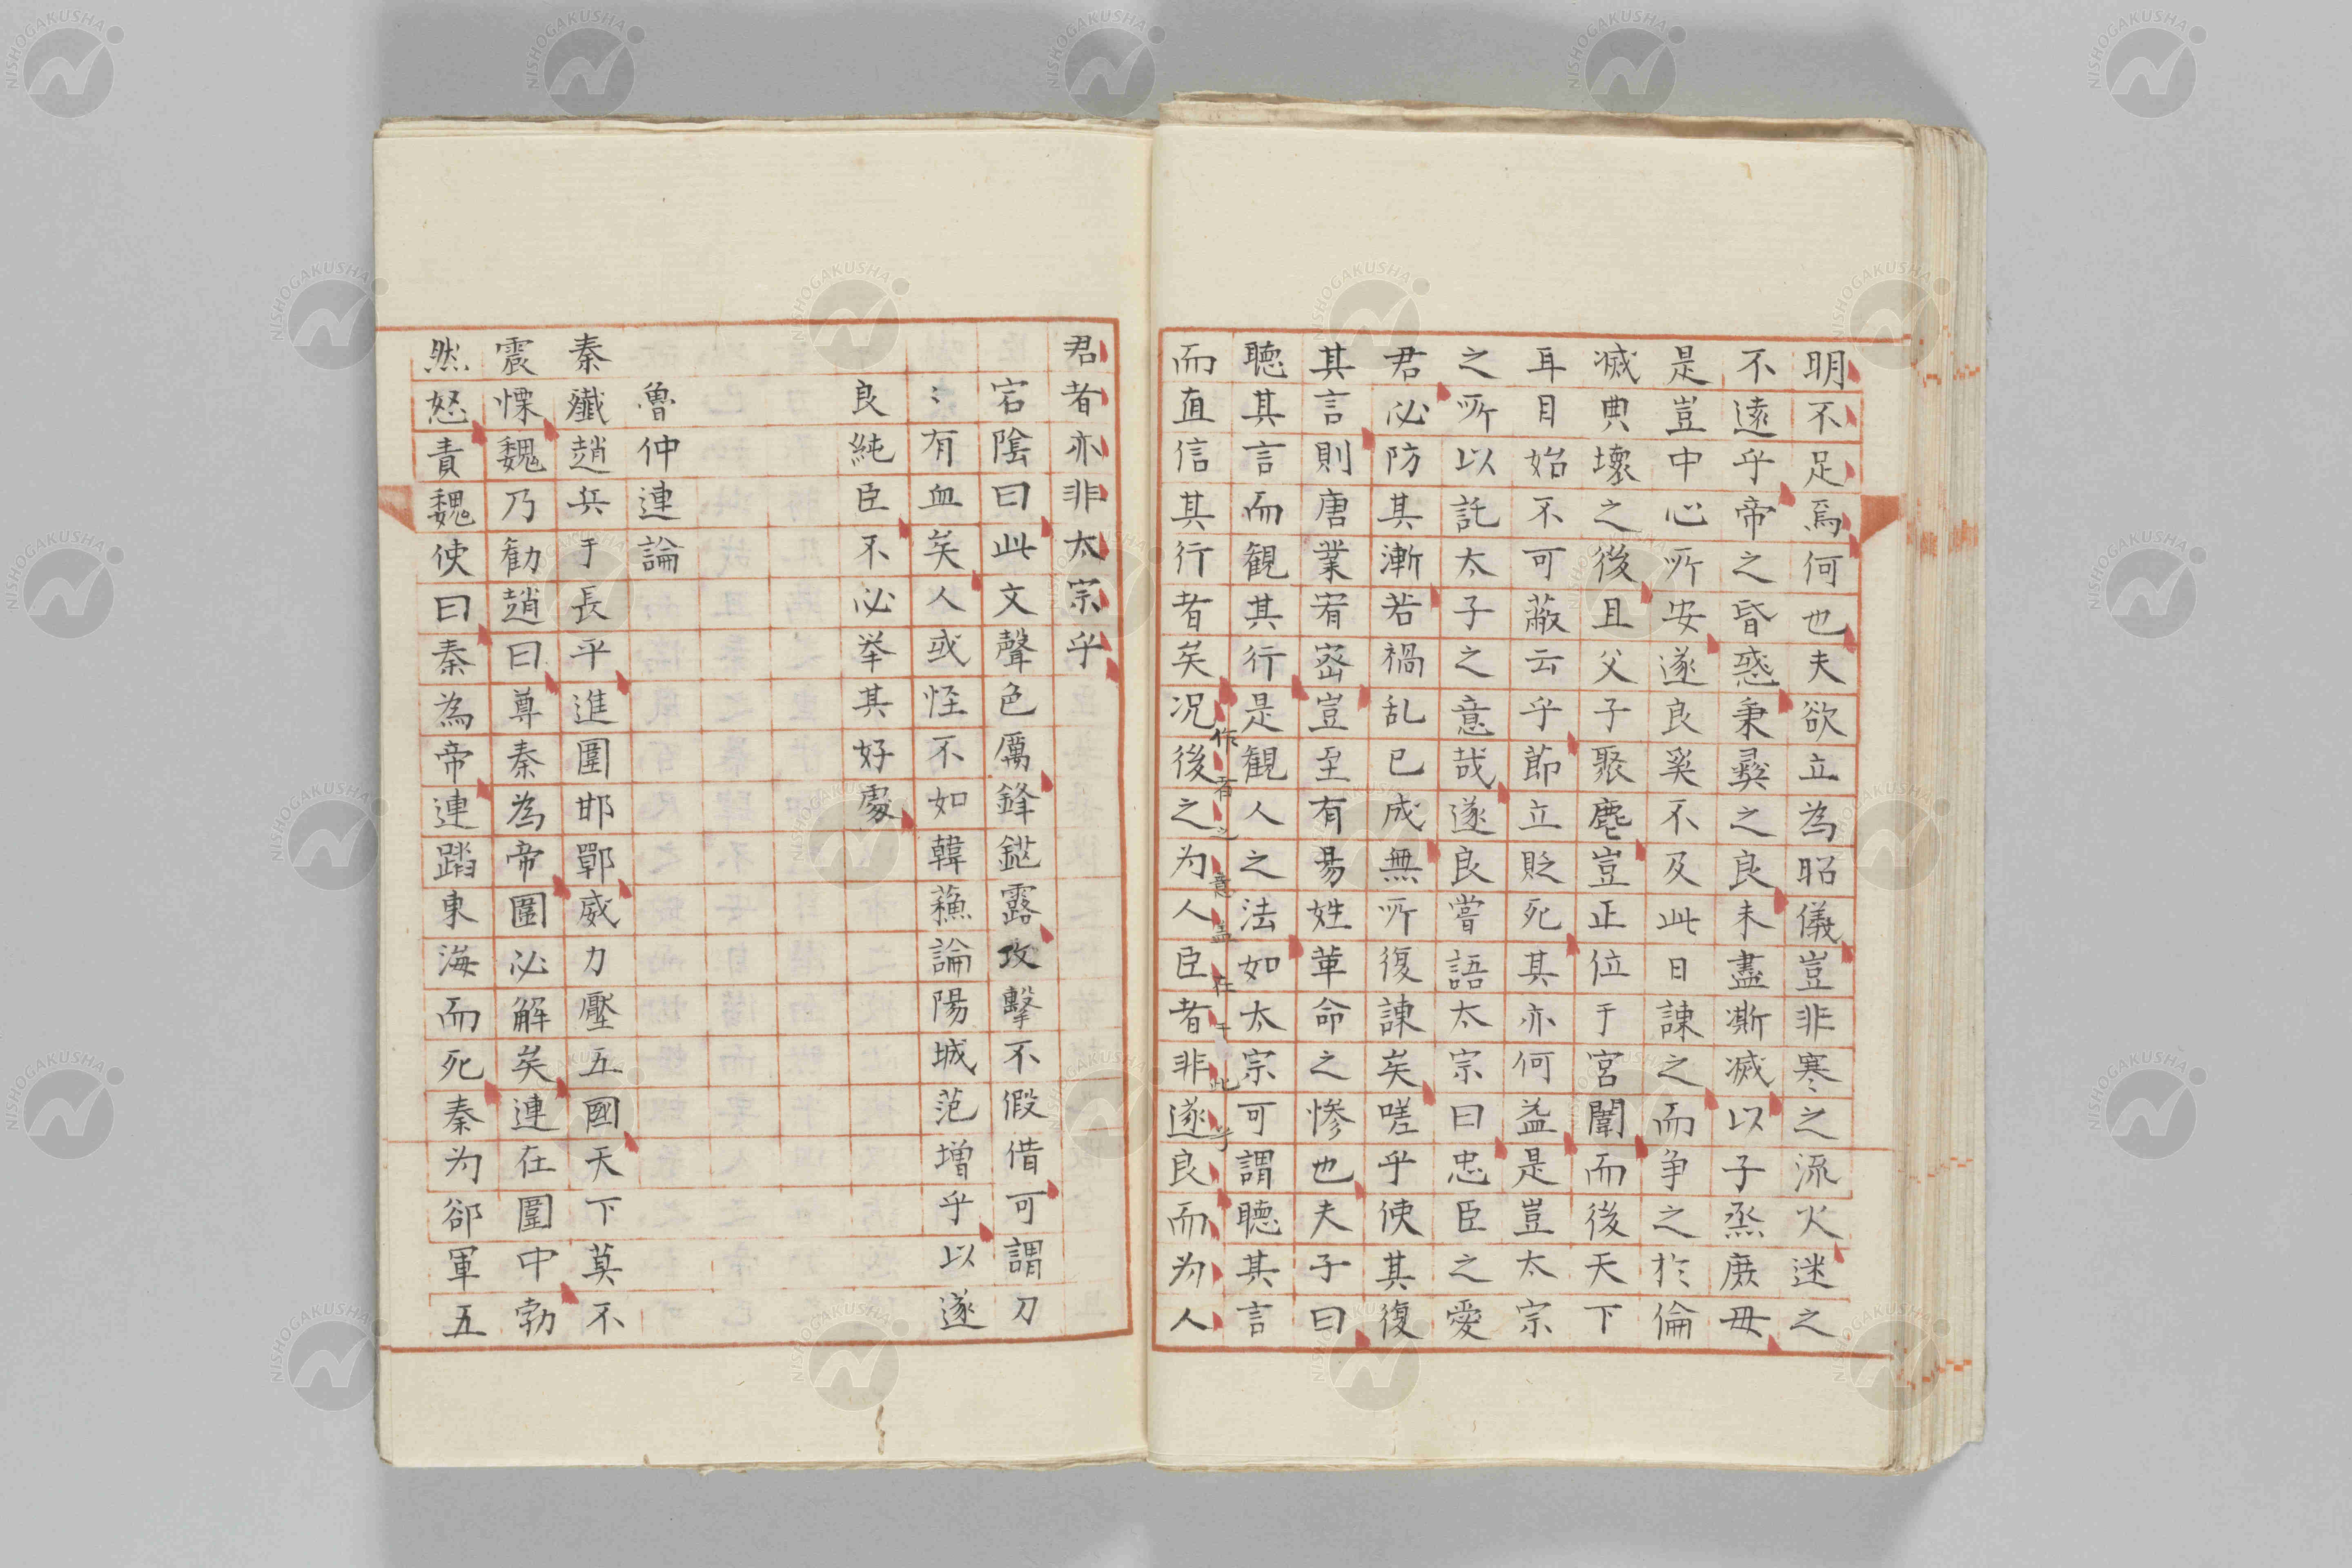 明不足焉何也夫欲立為昭儀豈非寒之流火迷之
不遠乎帝之昏惑秉彛之良未盡澌滅以子烝庶母
是豈中心所安遂良奚不及此日諫之而争之於倫
滅典壞之後且父子聚麀豈正位于宮闈而後天下
耳目始不可蔽云乎節立貶死其亦何益是豈太宗
之所以託太子之意哉遂良嘗語太宗曰忠臣之愛
君必防其漸若禍乱已成無所復諫矣嗟乎使其復
其言則唐業宥密豈至有易姓革命之惨也夫子曰
聽其言而観其行是観人之法如太宗可謂聽其言
而直信其行者矣况後之为人臣者非遂良而为人
作者之意盖在于此乎
君者亦非太宗乎
宕陰曰此文聲色厲鋒鋩露攻擊不假借可謂刀
〻有血矣人或怪不如韓蘓論陽城范増乎以遂
良純臣不必举其好處
魯仲連論
秦殱趙兵于長平進圍邯鄲威力壓五國天下莫不
震慄魏乃勧趙曰尊秦為帝圍必解矣連在圍中勃
然怒責魏使曰秦為帝連蹈東海而死秦为郤軍五
NISHOGAKUSHA